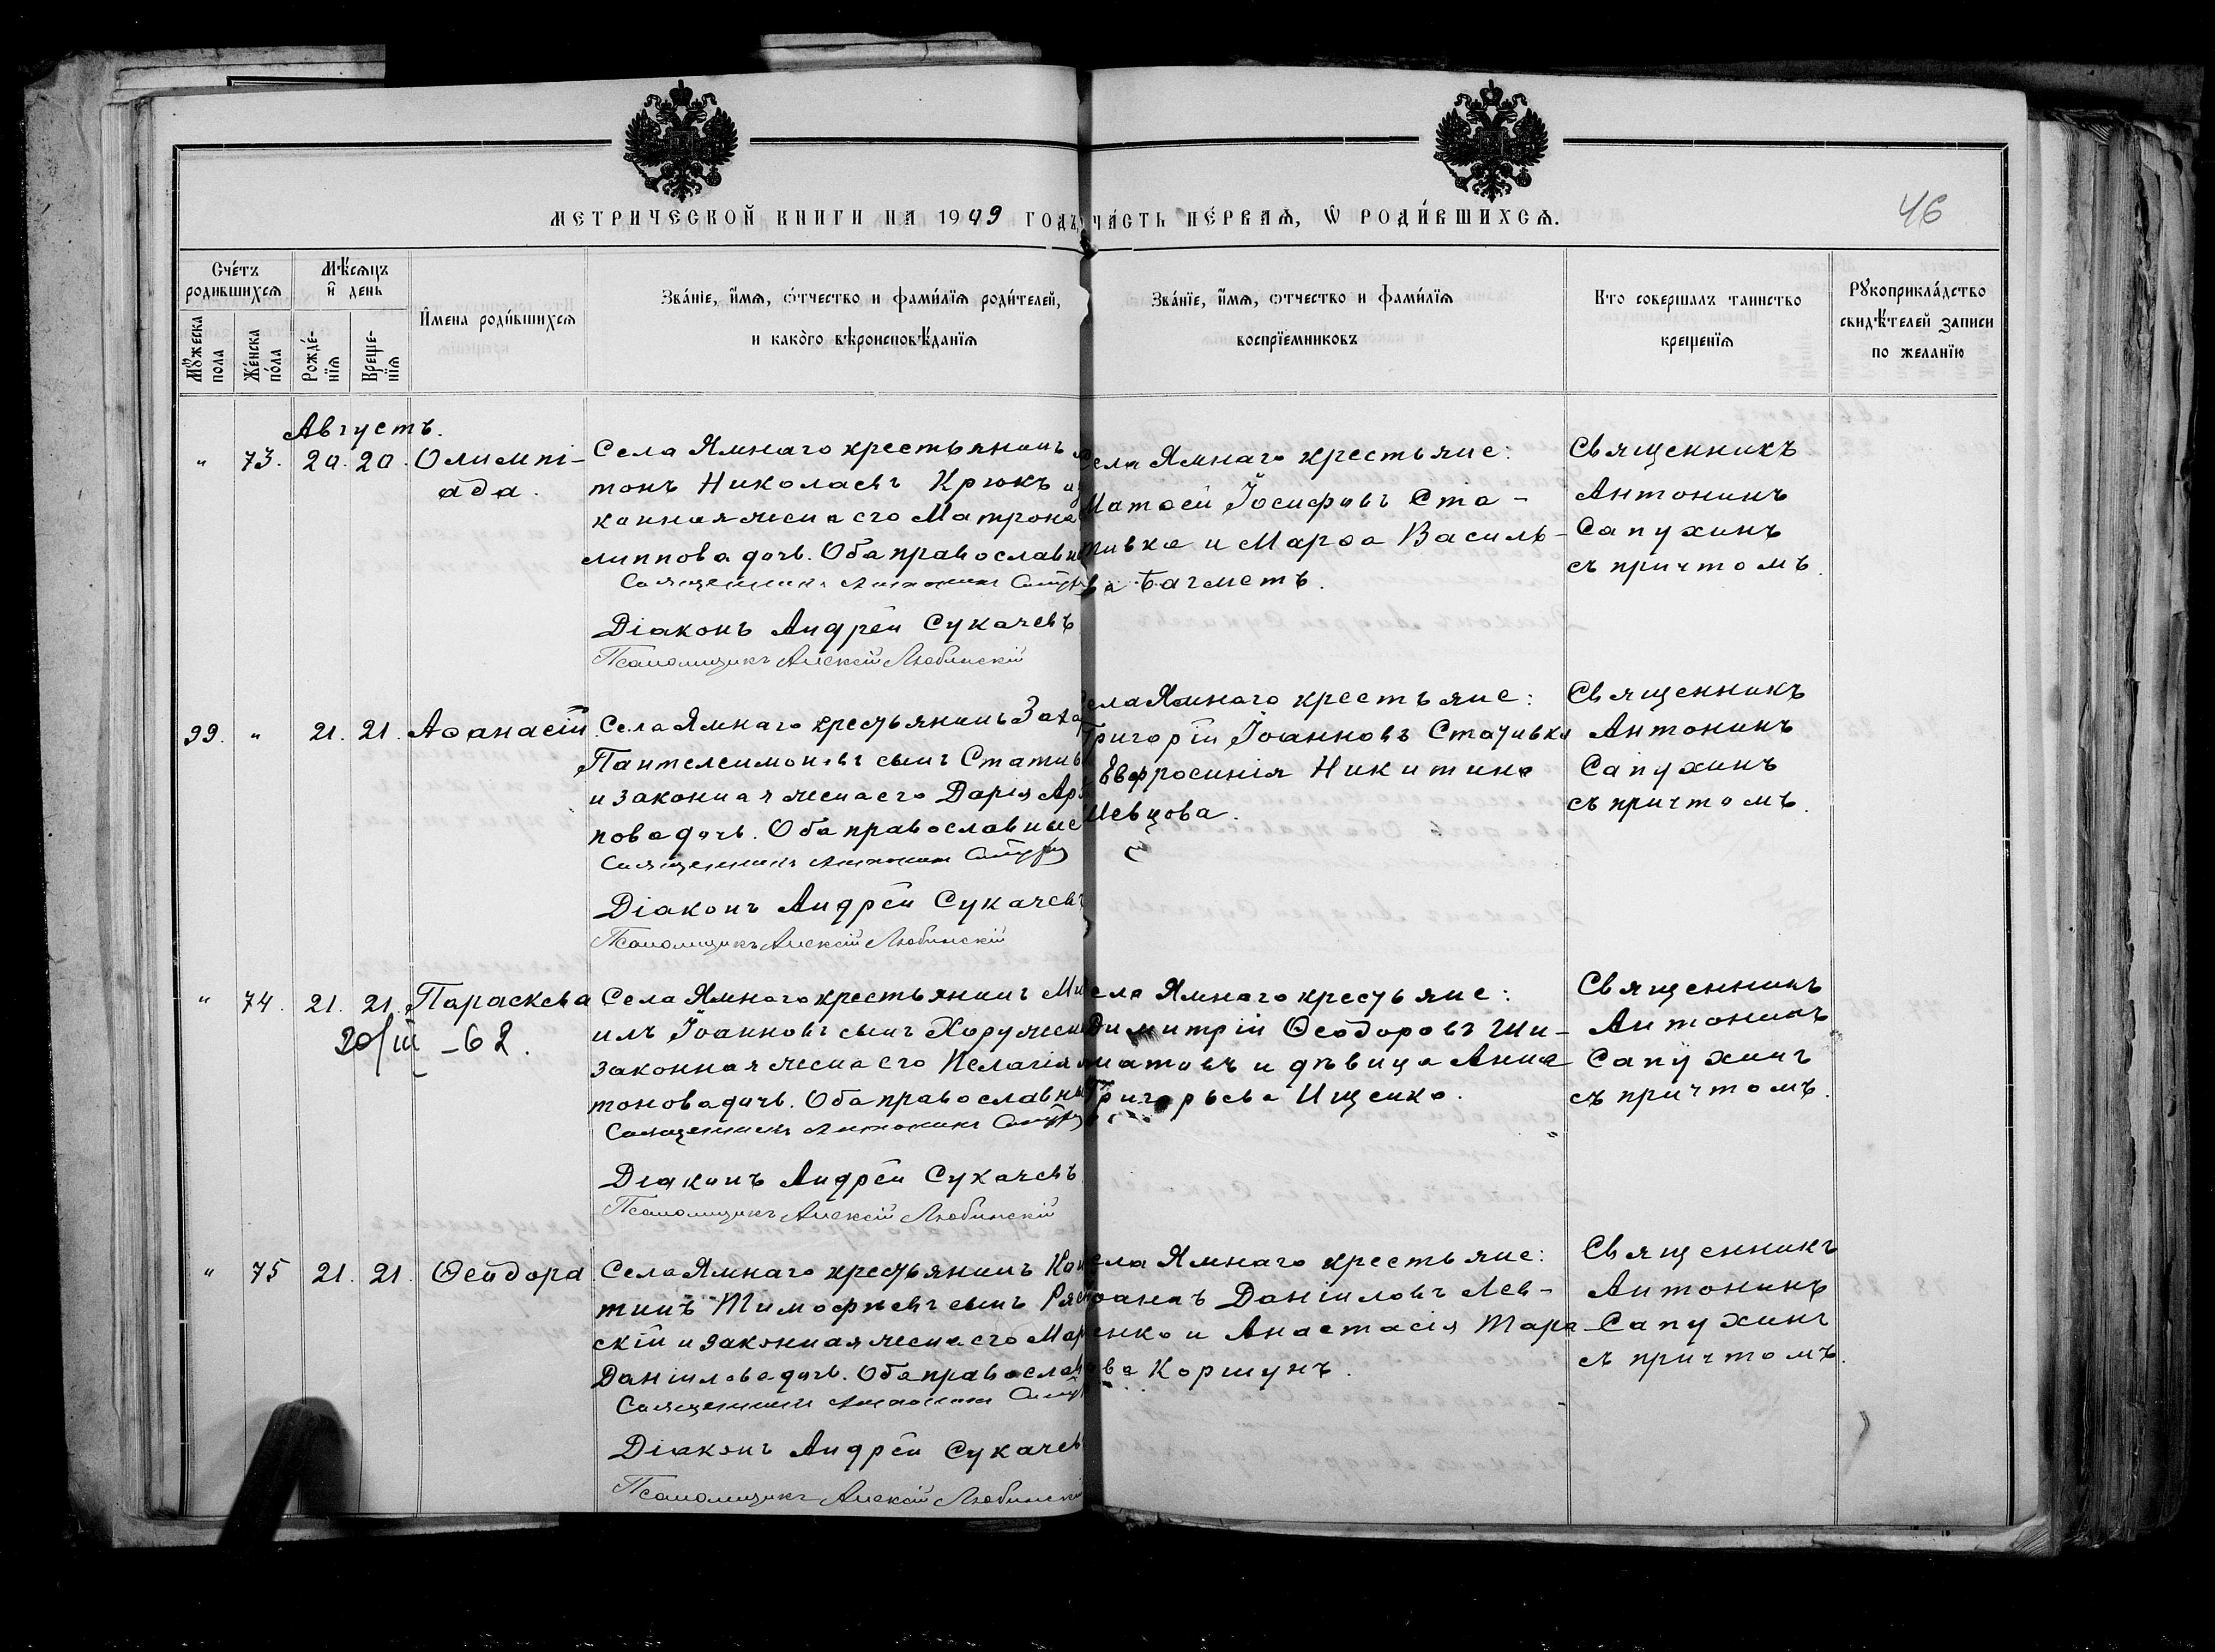 МЕТРИЧЕСКОЙ КНИГИ НА 1909 ГОДЪ, ЧА́СТЬ ПЕ́РВАѦ, Ѡ РОДИ́ВШИХСѦ.
46
Сче́тъ родившихсѧ
Мѣ́сѧцъ и день
Мꙋжеска пола
Же́нска по́ла
Рожде́-нїѧ
Креще-нїѧ
И҆мена роди́вшихсѧ
Зва́нїе, и҆́мѧ, ѻ҆́тчество и фами́лїѧ роди́телей,
и како́го вѣроисповѣ́данїѧ
Зва́нїе, и҆́мѧ, ѻтчество и фами́лїѧ
воспрїемниковъ
Кто совершалъ таинство
крещенїѧ
Рꙋкоприкла́дство
свидѣ́телей записи
по желанїю
Августъ.
" 73. 20. 20. Олимпі-
ада.
Села Ямнаго крестьянинъ
тонъ Николаевъ Крюкъ и
конная жена его Матрона
липпова дочь. Оба православны
Священникъ Антонинъ
Діаконъ Андрей Сукачевъ
Псаломщикъ Алексій Любинскій
ела Ямнаго крестьяне:
Матѳей Іосифовъ Ста-
тивка и Марѳа Василь-
ва Багметъ.
Священникъ
Антонинъ
Сапухинъ
съ причтомъ.
99. " 21. 21. Аѳанасій
Села Ямнаго крестьянинъ Заха
Пантелеимоновъ сынъ Статив
и законная жена его Дарія
пова дочь. Оба православные
Священникъ Антонинъ
Діаконъ Андрей Сукачевъ
Псаломщикъ Алексій Любинскій
ела Ямнаго крестьяне:
Григорій Іоанновъ Стативка
Евфросинія Никитина
Шевцова.
Священникъ
Антонинъ
Сапухинъ
съ причтомъ.
" 74. 21. 21. Параскева
20/III – 62.
Села Ямнаго крестьянинъ Ми
илъ Іоанновъ сынъ Хоружен
законная жена его Пелагія
тонова дочь. Оба православны
Священникъ Антонинъ
Діаконъ Андрей Сукачевъ
Псаломщикъ Алексій Любинскій
ела Ямнаго крестьяне:
Димитрій Ѳеодоровъ Ши-
матовъ и дѣвица Анна
Григорьева Ищенко.
Священникъ
Антонинъ
Сапухинъ
съ причтомъ.
" 75 21. 21. Ѳеодора
Села Ямнаго крестьянинъ Кон
тинъ Тимофеевъ сынъ
скій и законная жена его Мар
Даніилова дочь. Оба православ
Священникъ Антонинъ
Діаконъ Андрей Сукачев
Псаломщикъ Алексій Любински
ела Ямнаго крестьяне:
оаннъ Даніиловъ Лев-
енко и Анастасія Тара
ова Коршунъ.
Священникъ
Антонинъ
Сапухинъ
съ причтомъ.